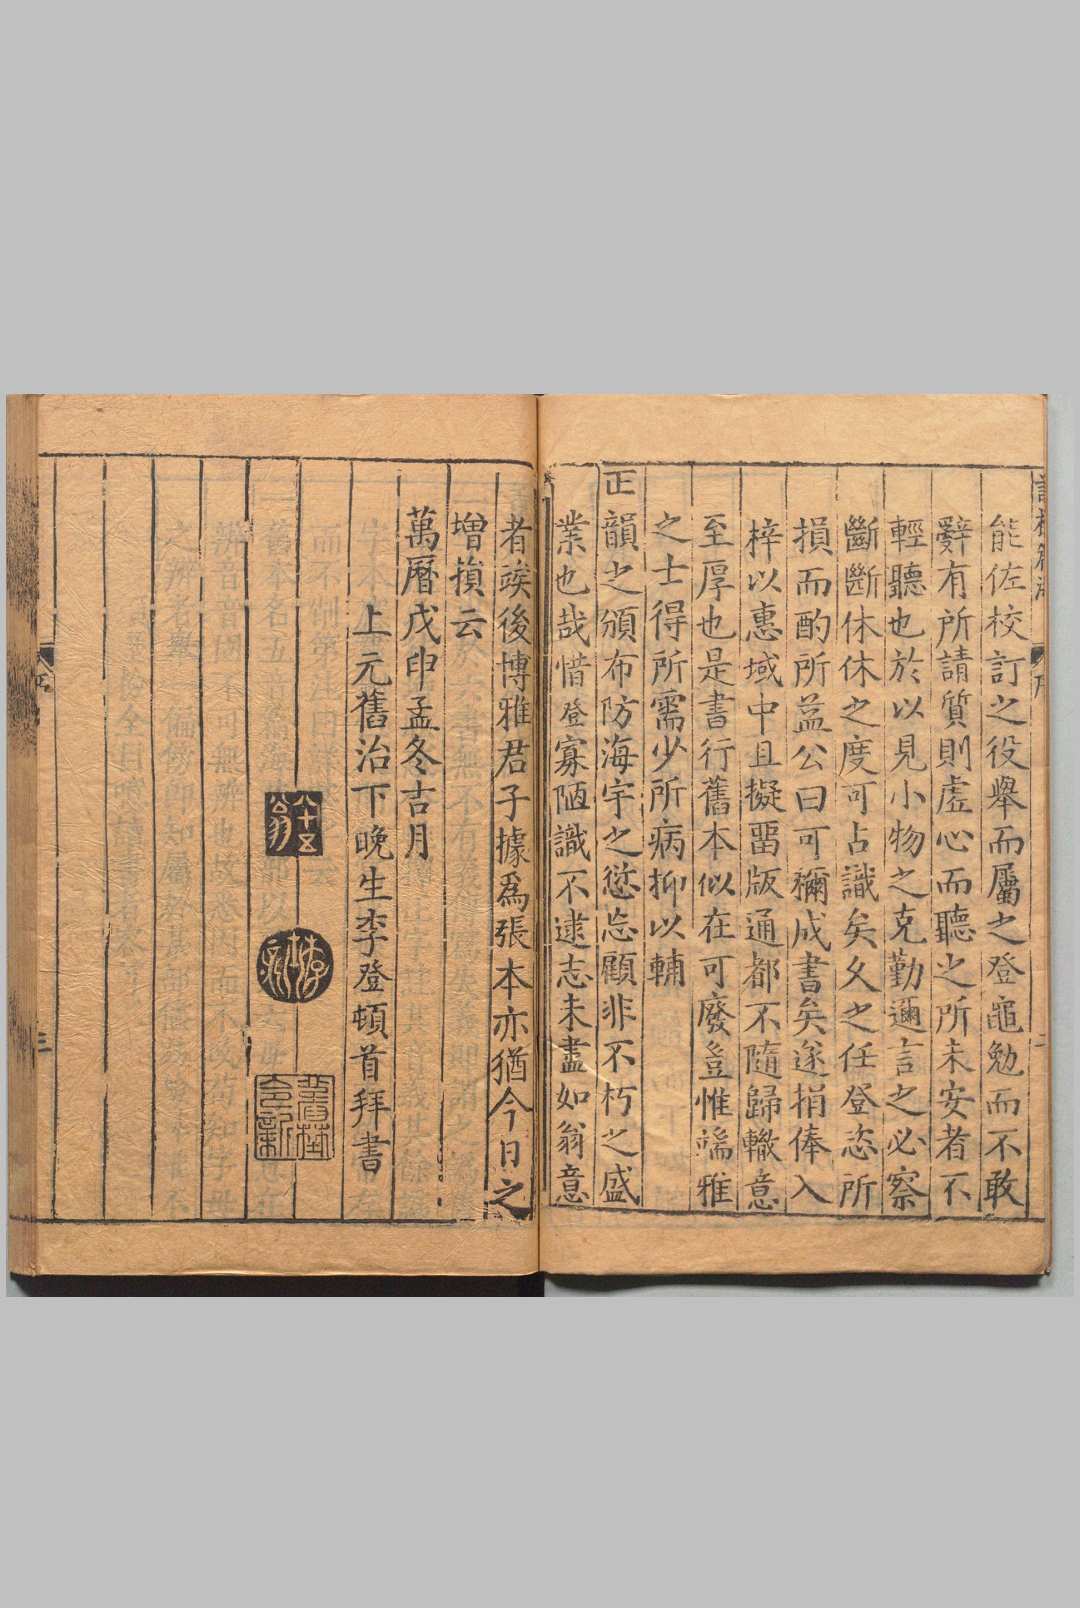 能佐校訂之役舉而屬之登黽勉而不敢
辭有所請質則虛心而聽之所未安者不
輕聽也於以見小物之克勤邇言之必察
斷斷休休之度可占識矣久之任登恣所
損而酌所益公曰可彌成書矣遂捐俸入
梓以惠域中且擬畱版通都不隨歸轍意
至厚也是書行舊本似在可廢豈惟端雅
之士得所需少所病抑以輔
正韻之頒布防海宇之愆忘顧非不朽之盛
業也哉惜登寡陋識不逮志未盡如翁意
者竢後博雅君子據為張本亦猶今日之
增損云
萬曆戊申孟冬吉月
上元舊治下晚生李登頓首拜書
八十五翁
三